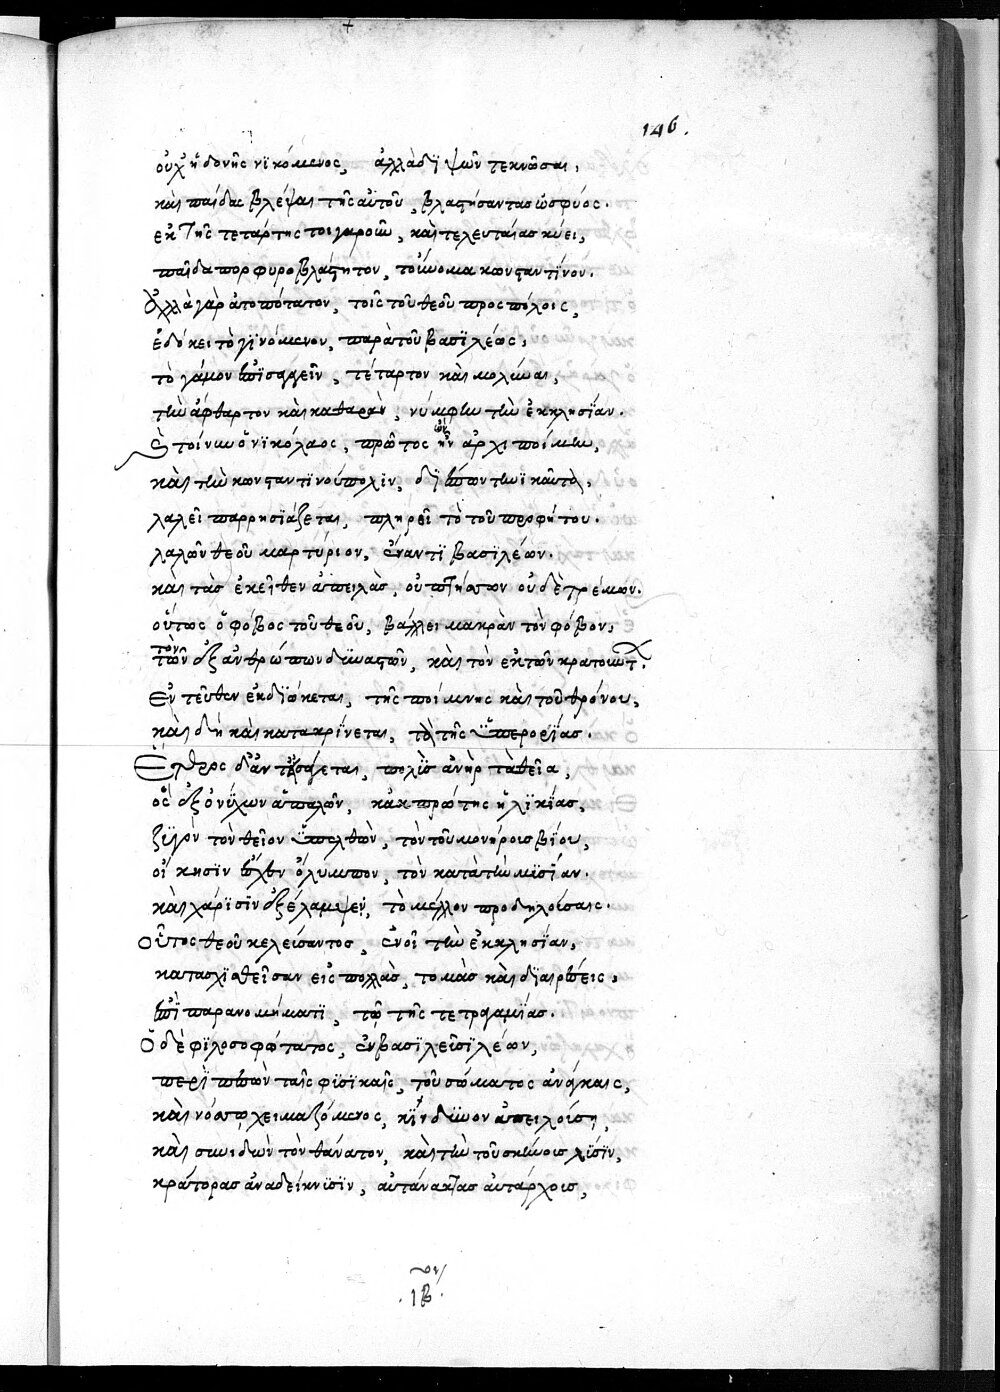 146.
οὐχ ἡδονῆς νικόμενος, ἀλλὰ διψῶν τεκνῶσαι,
καὶ παίδας βλέψαι τῆς αὐτοῦ, βλαστήσαντας ὀσφύος.
ἐκ τῆς τετάρτης τοιγαροῦν, καὶ τελευταίας κύει,
παῖδα πορφυροβλάστητον, τοὔνομα κωνσταντῖνον.
Ἀλλὰ γὰρ ἀτοπότατον, τοῖς τοῦ θεοῦ προσπόλοις,
ἐδόκει τὸ γϊνόμενον, παρὰ τοῦ βασϊλέως,
τὸ γάμον ἐπϊσαγεῖν, τέταρτον καὶ μολύναι,
τὴν ἄφθαρτον καὶ καθαρὰν, νύμφην τὴν ἐκκλησΐαν.
Ὁ τοίνυν νικόλαος, πρῶτος ὢν ἀρχιποίμην,
καὶ τὴν κωνσταντϊνούπολϊν, διέπων τηνϊκαῦτα,
λαλεῖ παρρησϊάζεται, πληρεῖ τὸ τοῦ προφήτου.
λαλῶν θεοῦ μαρτύριον, ἐναντϊ βασϊλέων.
καὶ τὰς ἐκεῖθεν ἀπειλὰς, οὐ πτήσσων οὐδὲ τρέμων.
οὕτως ὁ φόβος τοῦ θεοῦ, βάλλει μακρὰν τὸν φόβον,
τὸν
τῶν ἐξ ἀνθρώπων δυναστῶν, καὶ τὸν ἐκ τῶν κρατούντ.
Ἐντεῦθεν ἐκδϊώκεται, τῆς ποίμνης καὶ τοῦ θρόνου,
καὶ δὴ καὶ κατακρΐνεται, τὰ τῆς ὑπερορΐας.
Εὐθϋμος δ' ἀντϊσάγεται, πολϊὸς ἀνὴρ τὰ θεῖα,
ὃς ἐξ ὀνύχων ἁπαλῶν, κἀκ πρώτης ἡλϊκΐας,
ζϋγὸν τὸν θεῖον ὑπελθὼν, τὸν τοῦ μονήροις βΐου,
οἴκησϊν ἔσχεν ὄλυμπον, τὸν κατὰ τὴν μϋσΐαν.
καὶ χάρισϊν ἐξέλαμψεν, τὸ μέλλον προδηλούσαις.
Οὗτος θεοῦ κελεύσαντος, ἑνοῖ τὴν ἐκκλησΐαν,
κατασχϊσθεῖσαν εἰς πολλὰς, τομὰς καὶ δϊαιρέσεις,
ἐπΐ παρανομήματϊ, τῷ τῆς τετραγαμΐας.
Ὁ δὲ φϊλοσοφώτατος, ἐν βασιλεῦσϊ λέων,
περϊπεσὼν ταῖς φϋσϊκαῖς, τοῦ σώματος ἀνάγκαις,
καὶ νόσῳ χειμαζόμενος, κΐνδϋνον ἀπειλούσῃ,
καὶ συνιδὼν τὸν θάνατον, καὶ τὴν τοῦ σκήνους λΰσϊν,
κράτορας ἀναδείκνϋσϊν, αὐτάνακτας αὐτάρχους,
.ιβ.